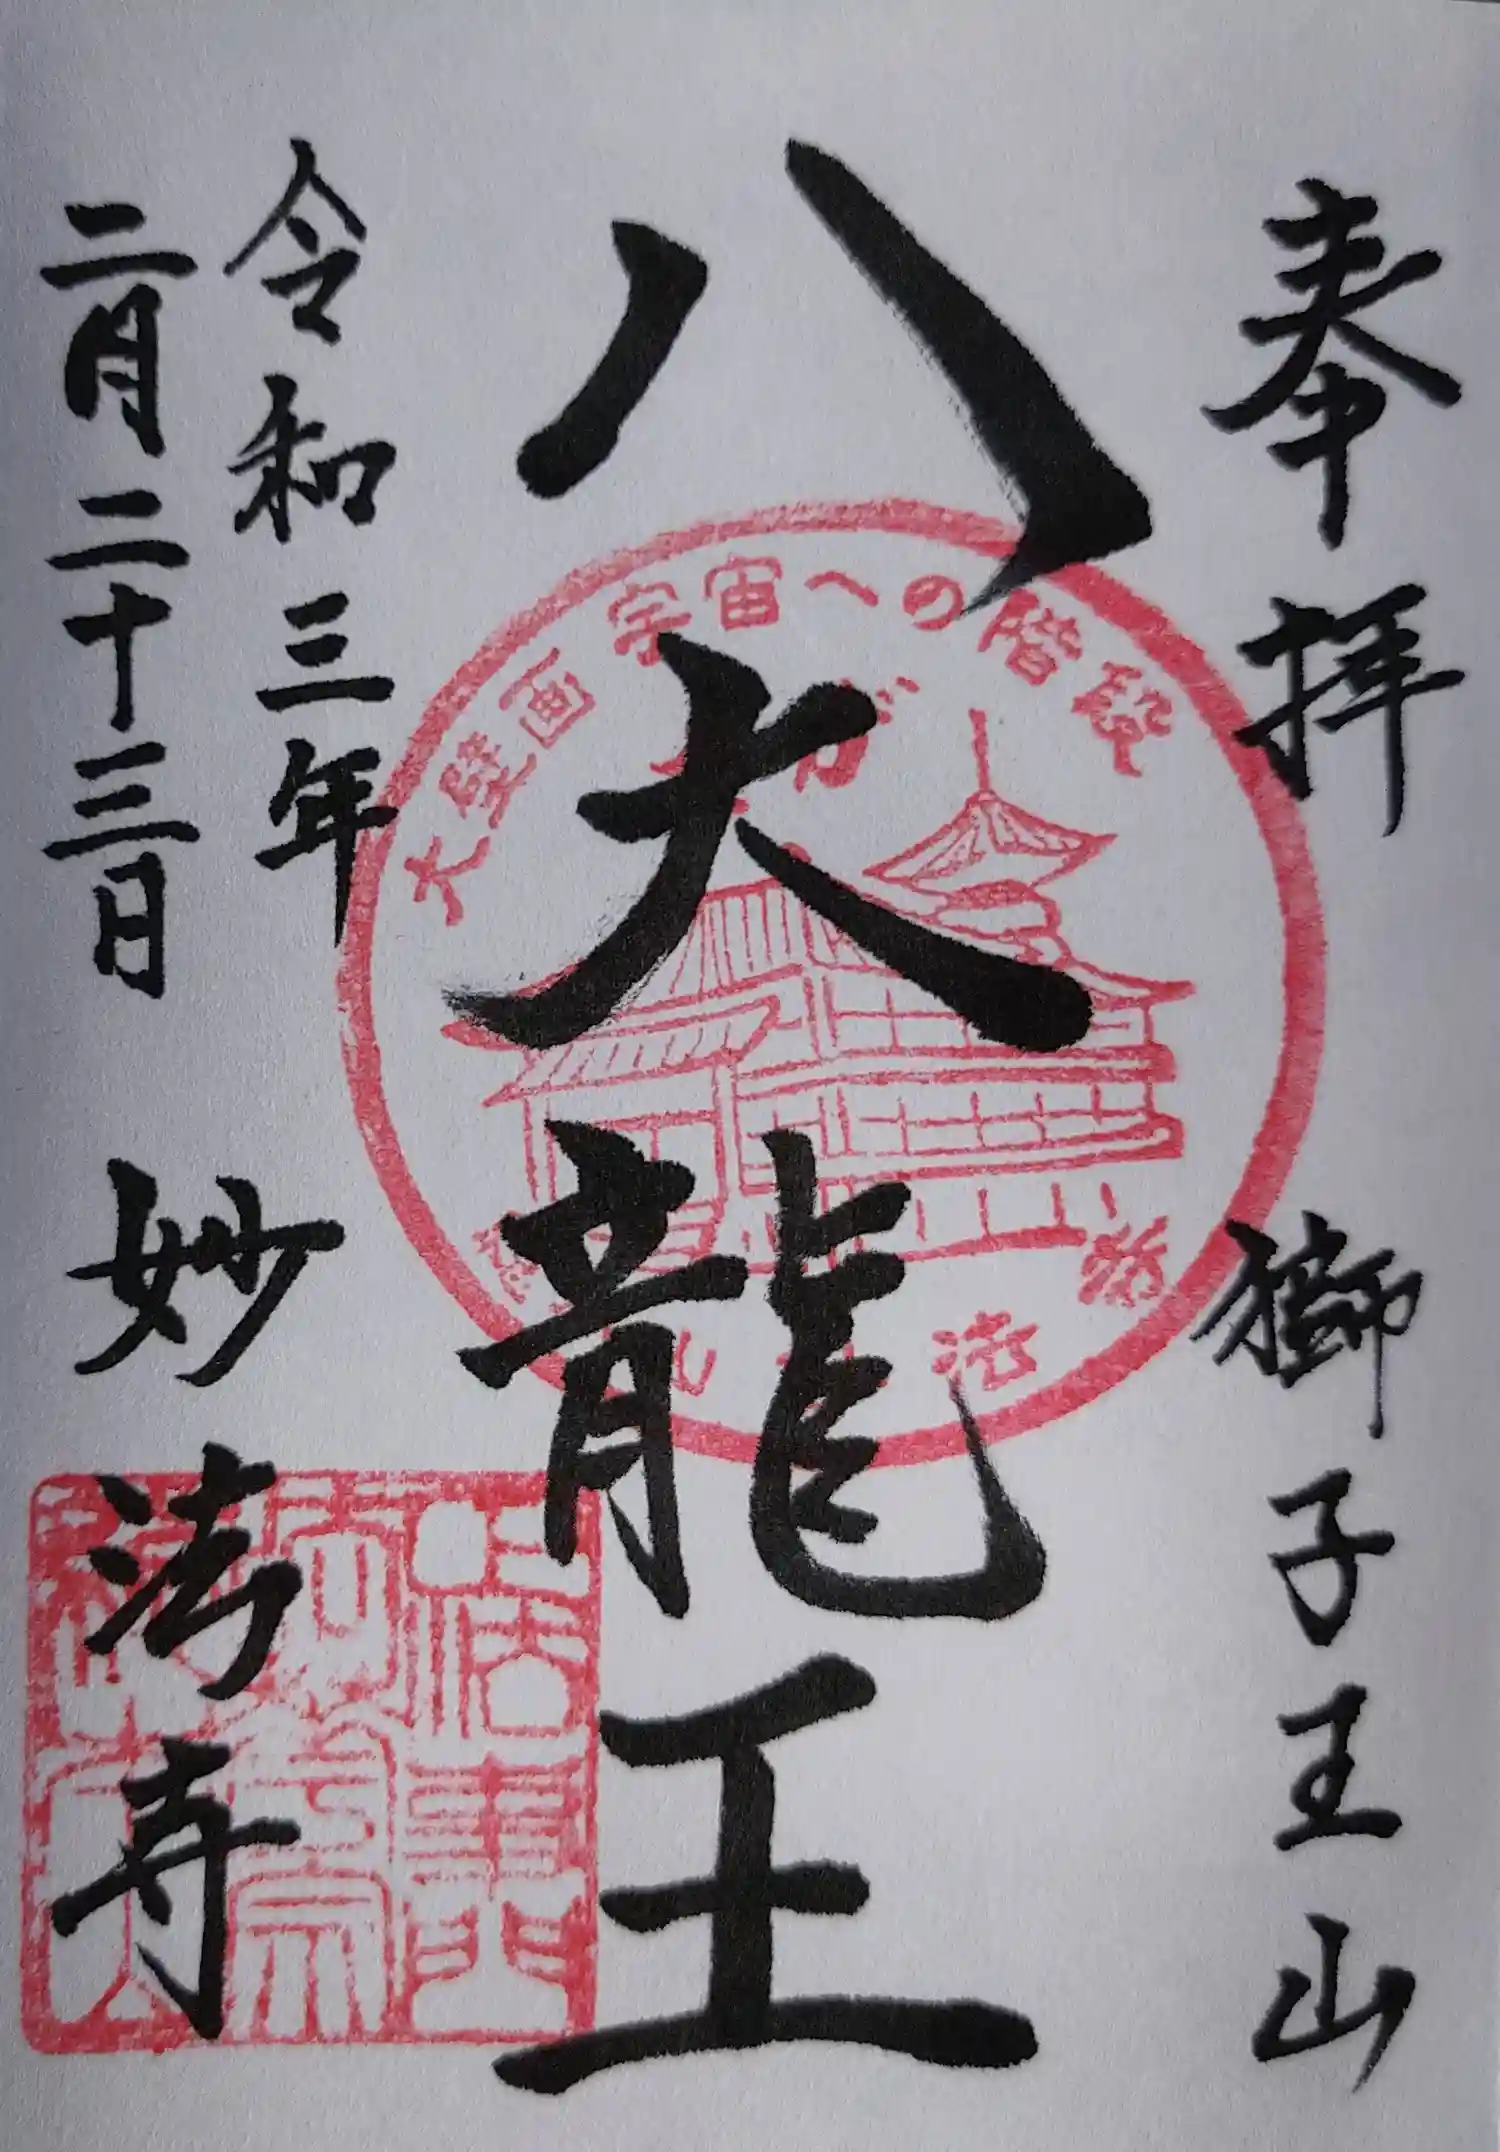 奉拝
獅子王山
八大龍王
令和三年
二月二十三日
妙法寺
大壁画 宇宙への階段